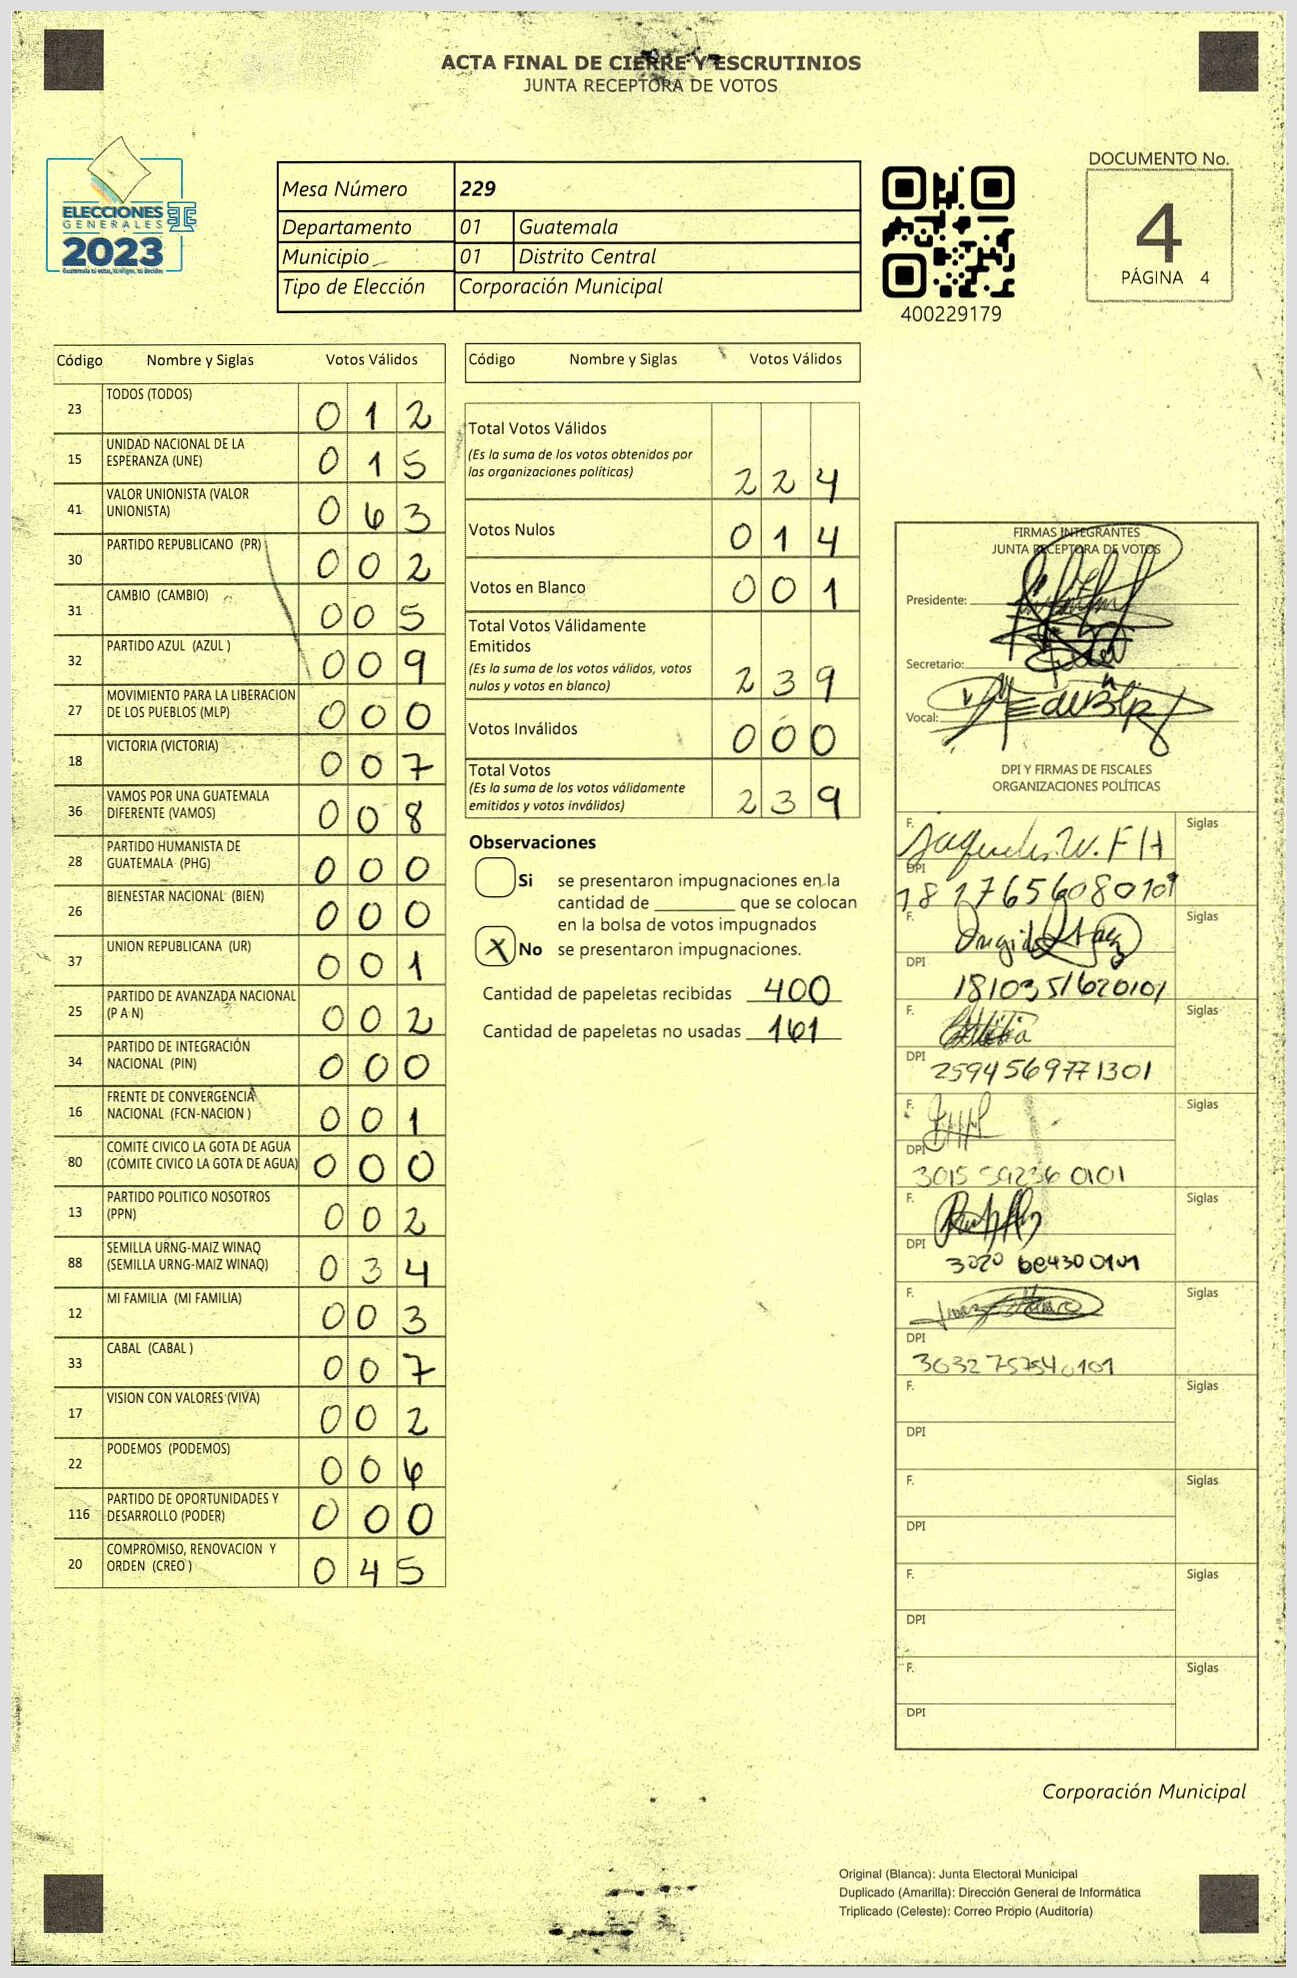 ACTA FINAL DE CIERRE Y ESCRUTINIOS
JUNTA RECEPTORA DE VOTOS
ELECCIONES
GENERALES
2023
Guatemala tú votas, tú eliges, tú decides
Mesa Número 229
Departamento 01 Guatemala
Municipio 01 Distrito Central
Tipo de Elección Corporación Municipal
400229179
DOCUMENTO No.
4
PÁGINA 4
Código Nombre y Siglas Votos Válidos
23 TODOS (TODOS) 0 1 2
15 UNIDAD NACIONAL DE LA
ESPERANZA (UNE) 0 1 5
41 VALOR UNIONISTA (VALOR
UNIONISTA) 0 6 3
30 PARTIDO REPUBLICANO (PR) 0 0 2
31 CAMBIO (CAMBIO) 0 0 5
32 PARTIDO AZUL (AZUL ) 0 0 9
27 MOVIMIENTO PARA LA LIBERACION
DE LOS PUEBLOS (MLP) 0 0 0
18 VICTORIA (VICTORIA) 0 0 7
36 VAMOS POR UNA GUATEMALA
DIFERENTE (VAMOS) 0 0 8
28 PARTIDO HUMANISTA DE
GUATEMALA (PHG) 0 0 0
26 BIENESTAR NACIONAL (BIEN) 0 0 0
37 UNION REPUBLICANA (UR) 0 0 1
25 PARTIDO DE AVANZADA NACIONAL
(P A N) 0 0 2
34 PARTIDO DE INTEGRACIÓN
NACIONAL (PIN) 0 0 0
16 FRENTE DE CONVERGENCIA
NACIONAL (FCN-NACION ) 0 0 1
80 COMITE CIVICO LA GOTA DE AGUA
(COMITE CIVICO LA GOTA DE AGUA) 0 0 0
13 PARTIDO POLITICO NOSOTROS
(PPN) 0 0 2
88 SEMILLA URNG-MAIZ WINAQ
(SEMILLA URNG-MAIZ WINAQ) 0 3 4
12 MI FAMILIA (MI FAMILIA) 0 0 3
33 CABAL (CABAL ) 0 0 7
17 VISION CON VALORES (VIVA) 0 0 2
22 PODEMOS (PODEMOS) 0 0 6
116 PARTIDO DE OPORTUNIDADES Y
DESARROLLO (PODER) 0 0 0
20 COMPROMISO, RENOVACION Y
ORDEN (CREO ) 0 4 5
Código Nombre y Siglas Votos Válidos
Total Votos Válidos
(Es la suma de los votos obtenidos por
las organizaciones políticas) 2 2 4
Votos Nulos 0 1 4
Votos en Blanco 0 0 1
Total Votos Válidamente
Emitidos
(Es la suma de los votos válidos, votos
nulos y votos en blanco) 2 3 9
Votos Inválidos 0 0 0
Total Votos
(Es la suma de los votos válidamente
emitidos y votos inválidos) 2 3 9
Observaciones
Si se presentaron impugnaciones en la
cantidad de ________ que se colocan
en la bolsa de votos impugnados
X No se presentaron impugnaciones.
Cantidad de papeletas recibidas 400
Cantidad de papeletas no usadas 161
FIRMAS INTEGRANTES
JUNTA RECEPTORA DE VOTOS
Presidente:
Secretario:
Vocal:
DPI Y FIRMAS DE FISCALES
ORGANIZACIONES POLÍTICAS
F. Siglas
DPI
F. Siglas
DPI 1810351620101
F. Siglas
DPI 2594569771301
F. Siglas
DPI 3015 59236 0101
F. Siglas
DPI
F. Siglas
DPI
F. Siglas
DPI
F. Siglas
DPI
F. Siglas
DPI
F. Siglas
DPI
Corporación Municipal
Original (Blanca): Junta Electoral Municipal
Duplicado (Amarilla): Dirección General de Informática
Triplicado (Celeste): Correo Propio (Auditoría)